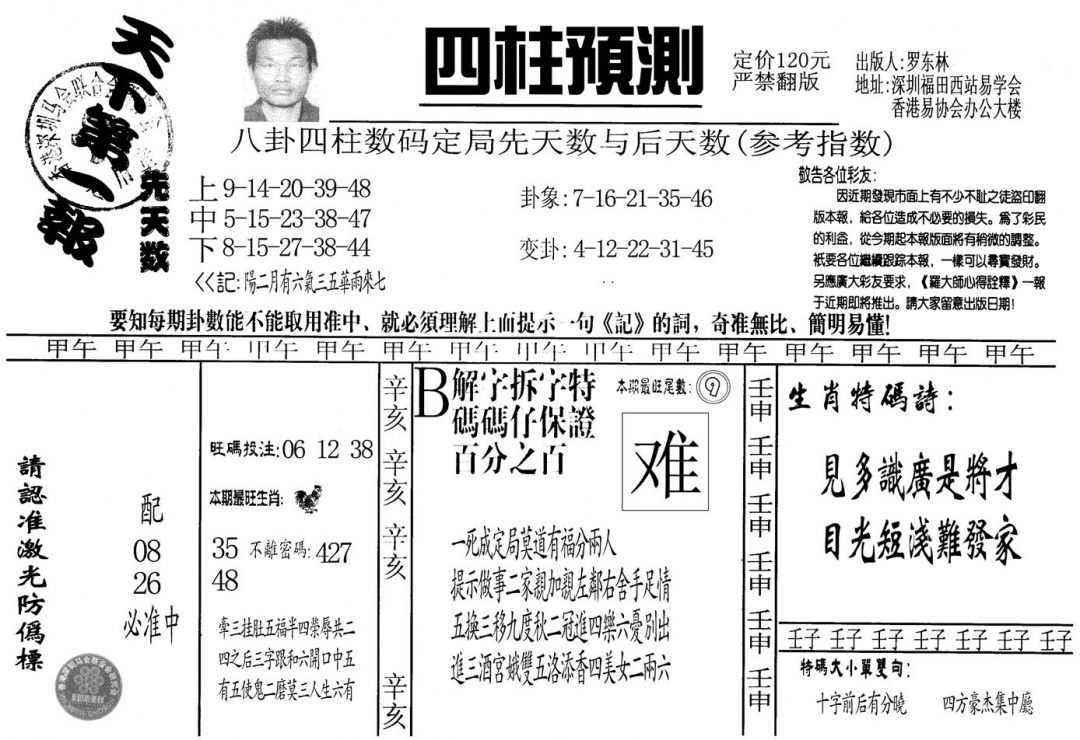 天下第一報
四柱預測
定价120元
严禁翻版
出版人:罗东林
地址:深圳福田西站易学会
香港易协会办公大楼
八卦四柱数码定局先天数与后天数(参考指数)
先天数
上9-14-20-39-48
中5-15-23-38-47
下8-15-27-38-44
<<記:陽二月有六氣三五華雨來七
卦象:7-16-21-35-46
变卦:4-12-22-31-45
敬告各位彩友:
因近期發現市面上有不少不耻之徒盜印翻
版本報，給各位造成不必要的損失。爲了彩民
的利益，從今期起本報版面將有稍微的調整。
衹要各位繼續跟踪本報，一樣可以尋寶發財。
另應廣大彩友要求，《羅大師心得詮釋》一報
于近期即將推出。請大家留意出版日期!
要知每期卦數能不能取用准中、就必須理解上面提示一句《記》的詞，奇准無比、簡明易懂!
甲午 甲午 甲午 甲午 甲午 甲午 甲午 甲午 甲午 甲午 甲午 甲午 甲午 甲午 甲午
請認准激光防僞標
配
08
26
必准中
旺碼投注:06 12 38
本期最旺生肖:
35 不離密碼:427
48
牽三挂肚五福半四榮辱共二
四之后三字跟和六開口中五
有五使鬼二磨莫三人生六有
辛亥
辛亥
辛亥
辛亥
B
解字拆字特
碼碼仔保證
百分之百
本期最旺尾數:9
难
一死成定局莫道有福分兩人
提示做事二家親加親左鄰右舍手足情
五换三移九度秋二冠進四樂六憂別出
進三酒宮娥雙五洛添香四美女二兩六
壬申
壬申
壬申
壬申
壬申
壬申
生肖特碼詩:
見多識廣是將才
目光短淺難發家
壬子 壬子 壬子 壬子 壬子 壬子 壬子
特碼大小單雙句:
十字前后有分曉 四方豪杰集中廳